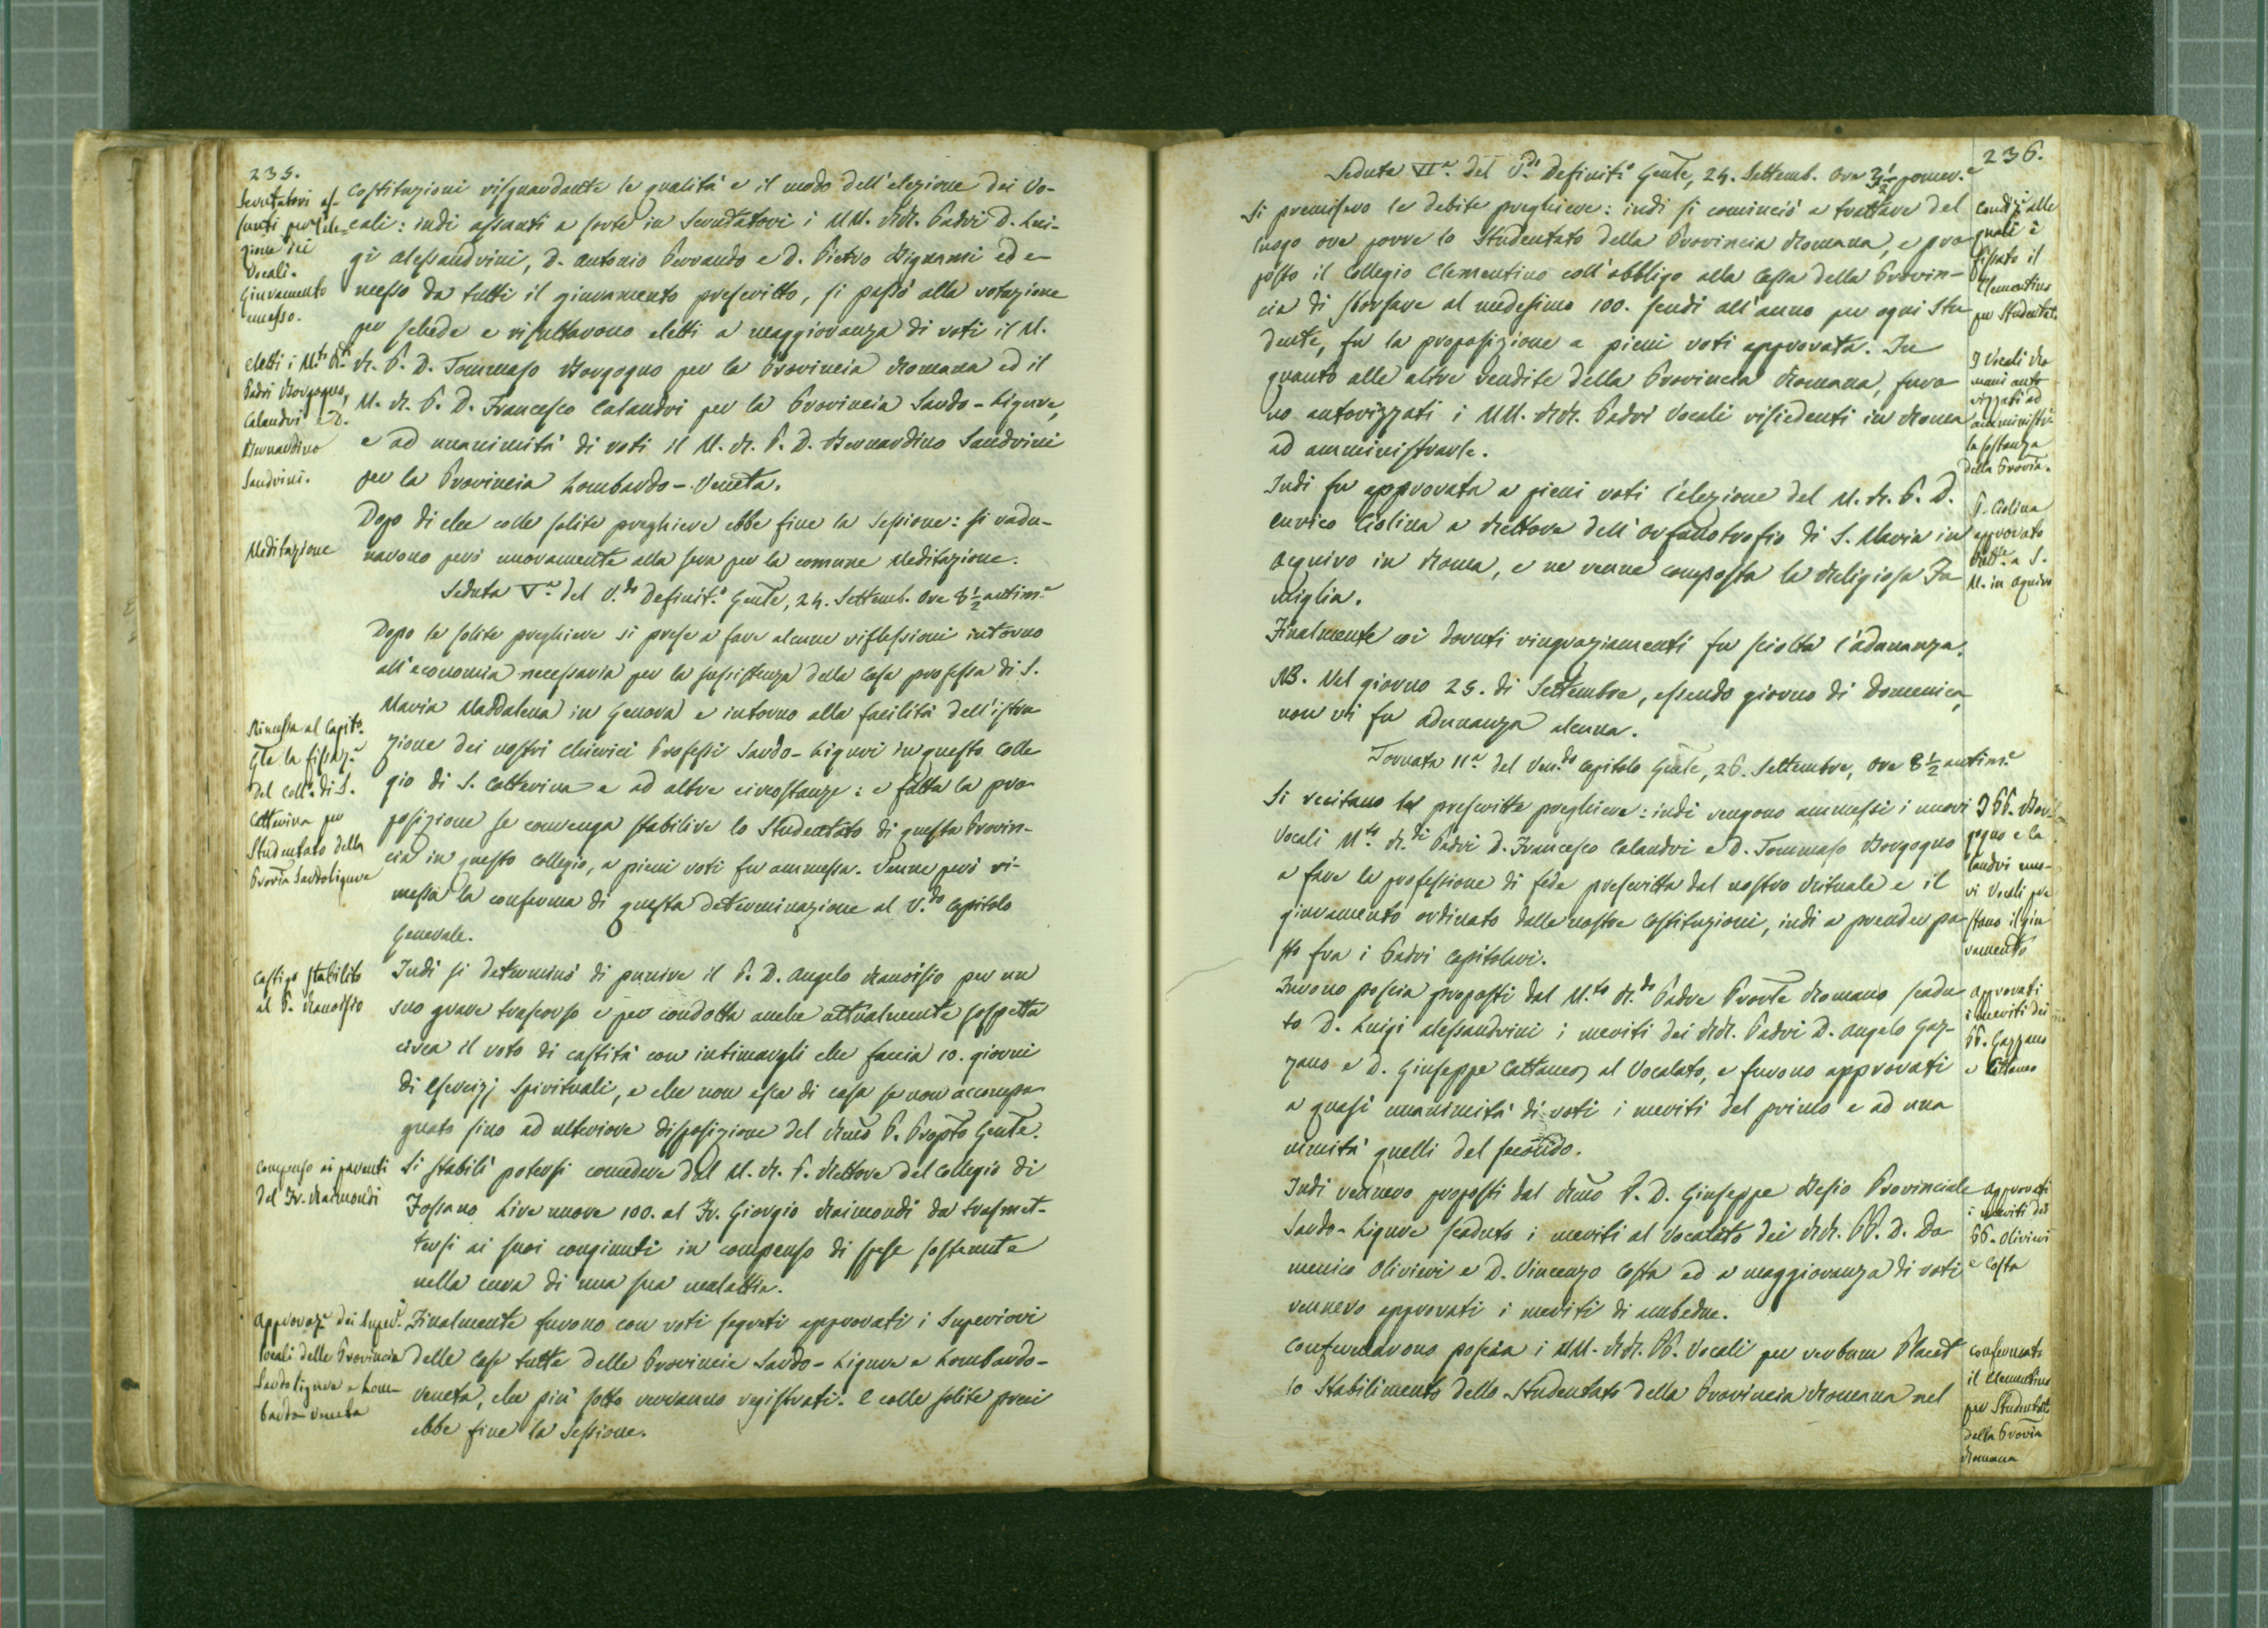 235.
Scrutatori as-
sunti per l'ele-
zione dei
Vocali.
Giuramento
emesso.
eletti i M.ti R.di
Padri Borgogno,
Calandri e D.
Bernardino
Sandrini.
Meditazione
Rimessa al Capit.o
Gle la fissaz.e
del Coll.o di S.
Catterina per
Studentato della
Provia Sardoligure
Castigo stabilito
al P.
Compenso ai parenti
del Fr. Raimondi
Approvaz.e dei Super.i
locali delle Provincia
Sardoligure e Lom-
bardo-Veneta
Costituzioni risguardante le qualità e il modo dell'elezione dei Vo-
cali: indi assunti a sorte in Scrutatori i MM. RR. Padri D. Lui-
gi Alessandrini, D. Antonio Perrando e D. Pietro Bignami ed e-
messo da tutti il giuramento prescritto, si passò alla votazione
per schede e risultarono eletti a maggioranza di voti il M.
R. P. D. Tommaso Borgogno per la Provincia Romana ed il
M. R. P. D. Francesco Calandri per la Provincia Sardo-Ligure,
e ad unanimità di voti il M. R. P. D. Bernardino Sandrini
per la Provincia Lombardo-Veneta.
Dopo di che colle solite preghiere ebbe fine la Sessione: si radu-
narono però nuovamente alla sera per la comune Meditazione.
Seduta V.a del V.do Definit.o Gente, 24. Settemb. Ore 8 1/2 antim.e
Dopo le solite preghiere si prese a fare alcune riflessioni intorno
all'economia necessaria per la sussistenza della Casa professa di S.
Maria Maddalena in Genova e intorno alla facilità dell'istru
zione dei nostri Chierici Professi Sardo-Liguri in questo Colle
gio di S. Catterina e ad altre circostanze: e fatta la pro-
posizione se convenga stabilire lo Studentato di questa Provin-
cia in questo Collegio, a pieni voti fu ammessa. Venne però ri-
messa la conferma di questa determinazione al V.do Capitolo
Generale.
Indi si determinò di punire il P. D. Angelo per un
suo grave trascorso e per condotta anche attualmente sospetta
circa il voto di castità con intimargli che faccia 10. giorni
di Esercizj Spirituali, e che non esca di casa se non accompa
gnato sino ad ulteriore disposizione del Rmo P. Propto Gente.
Si stabilì potersi concedere dal M. R. P. Rettore del Collegio di
Fossano Lire nuove 100. al Fr. Giorgio Raimondi da trasmet-
tersi ai suoi congiunti in compenso di spese sostenute
nella cura di una sua malattia.
Finalmente furono con voti segreti approvati i Superiori
delle Case tutte delle Provincie Sardo-Ligure e Lombardo-
Veneta, che più sotto verranno registrati. E colle solite preci
ebbe fine la Sessione.
236.
Seduta VI.a del V.do Definit.o Gente, 24. Settemb. Ore 3 1/2 pomer.e
Si premisero le debite preghiere: indi si cominciò a trattare del
luogo ove porre lo Studentato della Provincia Romana, e pro
posto il Collegio Clementino coll'obbligo alla Cassa della Provin-
cia di sborsare al medesimo 100. scudi all'anno per ogni Stu
dente, fu la proposizione a pieni voti approvata. In
quanto alle altre rendite della Provincia Romana, furo
no autorizzati i MM. RR. Padri Vocali risiedenti in Roma
ad amministrarle.
Indi fu approvata a pieni voti l'elezione del M. R. P. D.
Enrico Ciolina a Rettore dell'Orfanotrofio di S. Maria in
Aquiro in Roma, e ne venne composta la Religiosa Fa
miglia.
Finalmente coi dovuti ringraziamenti fu sciolta l'adunanza.
NB. Nel giorno 25. di Settembre, essendo giorno di Domenica,
non vi fu adunanza alcuna.
Tornata II.a del Ven.do Capitolo Gente, 26. Settembre, Ore 8 1/2 antim.e
Si recitano le prescritte preghiere: indi vengono ammessi i nuovi
Vocali M.ti R.di Padri D. Francesco Calandri e D. Tommaso Borgogno
a fare la professione di fede prescritta dal nostro Rituale e il
giuramento ordinato dalle nostre Costituzioni, indi a prender po
sto fra i Padri Capitolari.
Furono poscia proposti dal M.to R.do Padre Provle Romano scadu
to D. Luigi Alessandrini i meriti dei RR. Padri D. Angelo Gaz-
zano e D. Giuseppe Cattaneo, al Vocalato, e furono approvati
a quasi unanimità di voti i meriti del primo e ad una
nimità quelli del secondo.
Indi vennero proposti dal Rmo P. D. Giuseppe Besio Provinciale
Sardo-Ligure scaduto i meriti al Vocalato dei RR. PP. D. Do
menico Olivieri e D. Vincenzo Costa ed a maggioranza di voti
vennero approvati i meriti di ambedue.
Confermarono poscia i MM. RR. PP. Vocali per verbum Placet
lo Stabilimento dello Studentato della Provincia Romana nel
Condiz.i alle
quali è
fissato il
Clementino
per Studentat.
I Vocali Ro
mani auto
rizzati ad
amministr.
la sostanza
della Provia.
P. Ciolina
approvato
Rett.e a S.
M. in Aquiro
I PP. Bor-
gogno e Ca
landri nuo-
vi Vocali pre
stano il giu
ramento
Approvati
i meriti dei
PP. Gazzano
e Cattaneo
Approvati
i meriti dei
PP. Olivieri
e Costa
Confermato
il Clementino
per Studentat.
della Provia
Romana